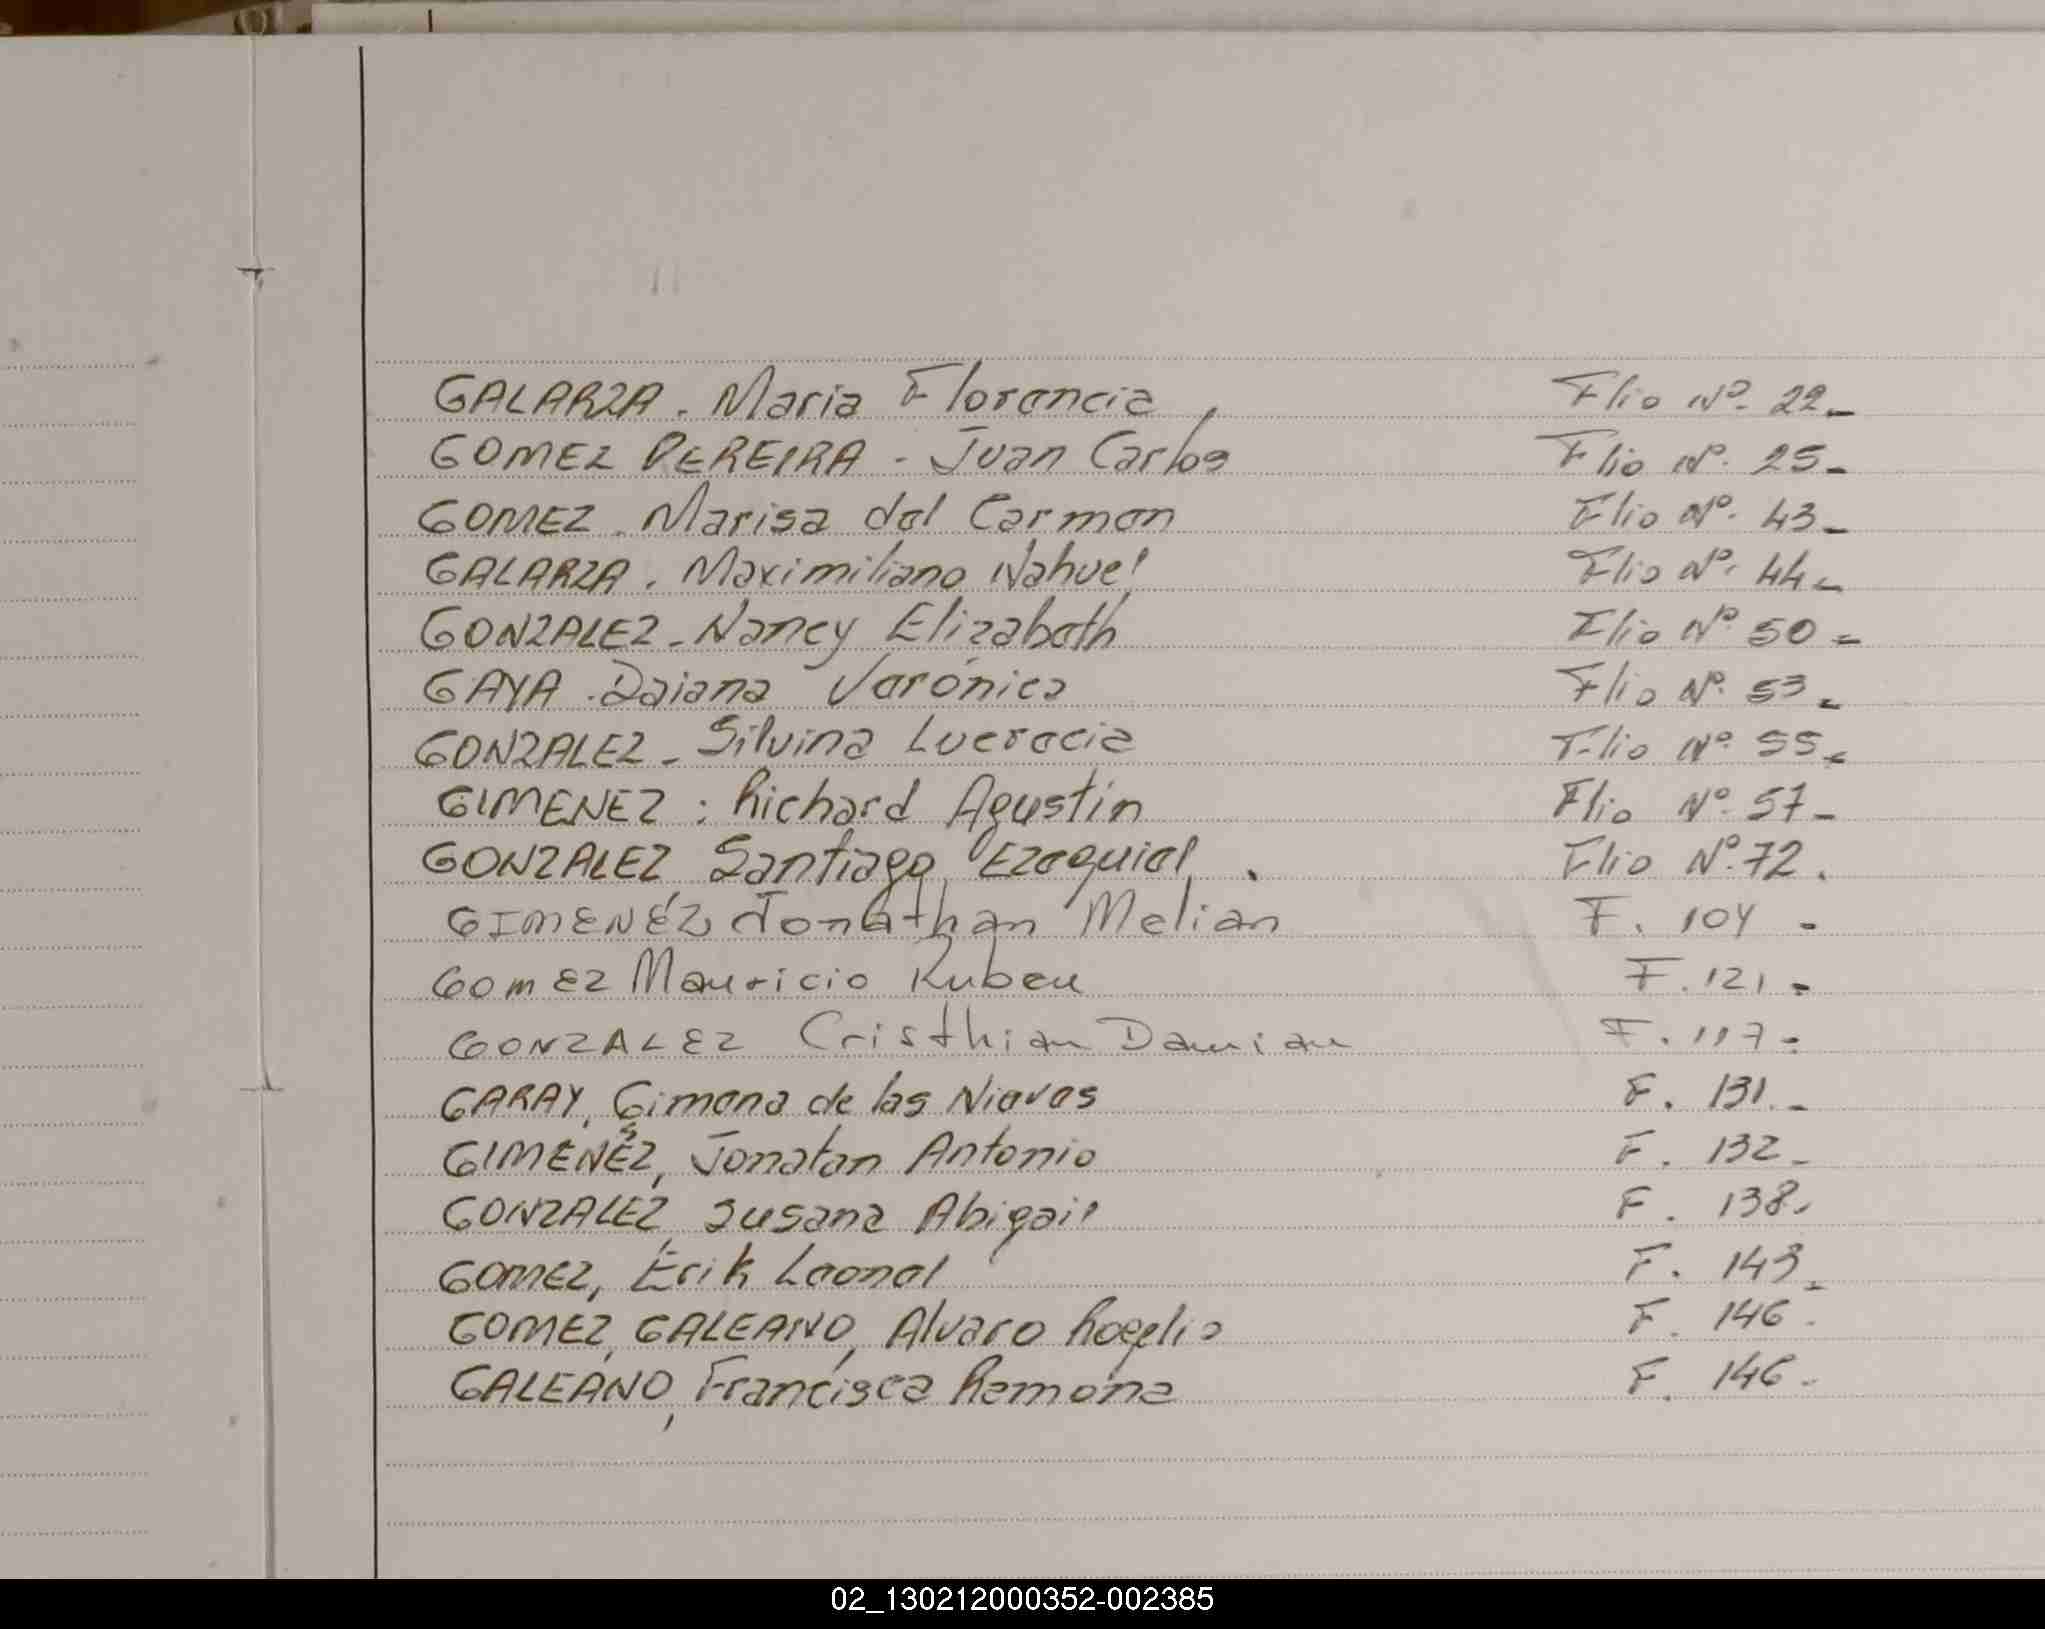 GALARZA. Maria Florencia Flio Nº. 22_
GOMEZ PEREIRA - Juan Carlos Flio Nº. 25_
GOMEZ. Marisa del Carmen Flio Nº. 43_
GALARZA. Maximiliano Nahuel Flio Nº. 44_
GONZALEZ_ Nancy Elizabeth Flio Nº 50_
GAYA. Daiana Verónica Flio Nº. 53_
GONZALEZ_ Silvina Lucrecia Flio Nº. 55_
GIMENEZ: Richard Agustín Flio Nº. 57_
GONZALEZ Santiago Ezequiel. Flio Nº.72.
GIMENÉZ Jonathan Melian F. 104 -
Gomez Mauricio Ruben F. 121 -
GONZALEZ Cristhian Damian F. 117 -
GARAY, Gimena de las Nieves F. 131_
GIMENEZ, Jonatan Antonio F. 132_
GONZALEZ, Susana Abigail F. 138.
GOMEZ, Erik Leonel F. 143_
GOMEZ, GALEANO, Alvaro Rogelio F. 146.
GALEANO, Francisca Ramona F. 146.
02_130212000352-002385